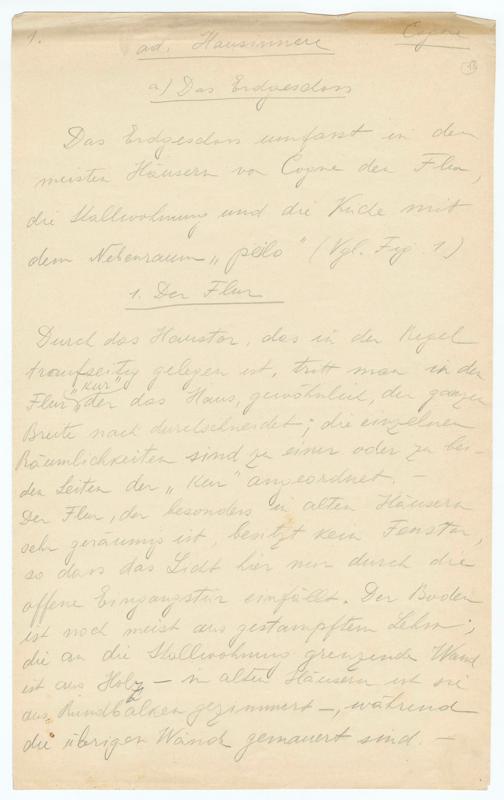 1.
ad. Hausinnere
Cogne
13
a) Das Erdgeschoss
Das Erdgeschoss umfasst in den
meisten Häusern von Cogne den Flur,
die Stallwohnung und die Küche mit
dem Nebenraum „pëlo" (Vgl. Fig. 1.)
1. Der Flur
Durch das Haustor, das in der Regel
traufseitig gelegen ist, tritt man in den
Flur, „kur" der das Haus, gewöhnlich, der ganzen
Breite nach durchschneidet; die einzelnen
Räumlichkeiten sind zu einer oder zu bei-
den Seiten der „kur" angeordnet. —
Der Flur, der besonders in alten Häusern
sehr geräumig ist, besitzt kein Fenster,
so dass das Licht hier nur durch die
offene Eingangstür einfällt. Der Boden
ist noch meist aus gestampftem Lehm;
die an die Stallwohnung grenzende Wand
ist aus Holz — in alten Häusern ist sie
aus Rundbalken gezimmert —, während
die übrigen Wände gemauert sind. —